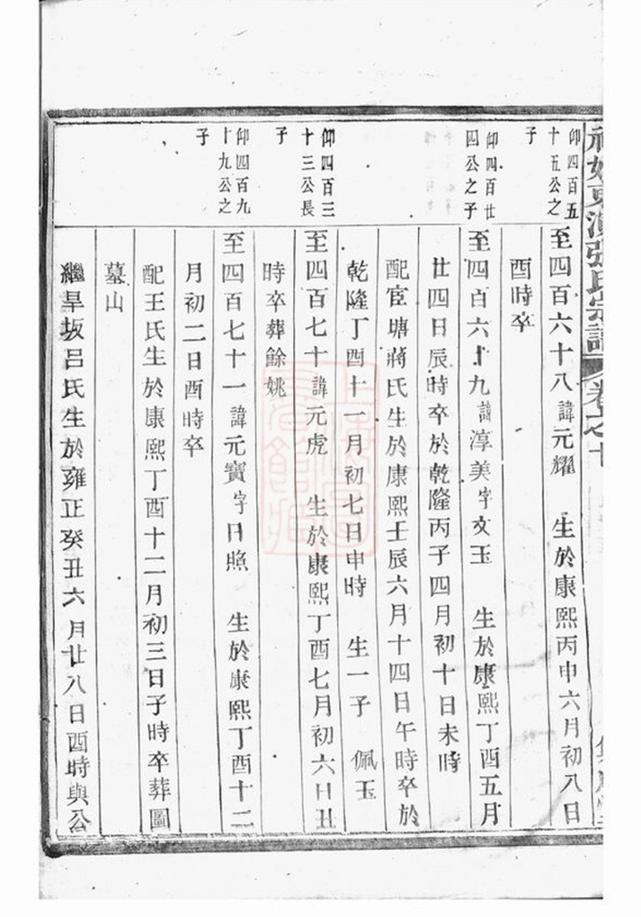 張氏宗譜 卷之十
仰四百五
十五公之
子
至四百六十八諱元耀 生於康熙丙申六月初八日
酉時卒
仰四百廿
四公之子
至四百六十九諱淳美字文玉 生於康熙丁酉五月
廿四日辰時卒於乾隆丙子四月初十日未時
配官塘蔣氏生於康熙壬辰六月十四日午時卒於
乾隆丁酉十一月初七日申時 生一子 佩玉
仰四百三
十三公長
子
至四百七十諱元虎 生於康熙丁酉七月初六日丑
時卒葬餘姚
仰四百九
十九公之
子
至四百七十一諱元寶字日照 生於康熙丁酉十二
月初二日酉時卒
配王氏生於康熙丁酉十二月初三日子時卒葬圖
墓山
繼旱坂呂氏生於雍正癸丑六月廿八日酉時與公